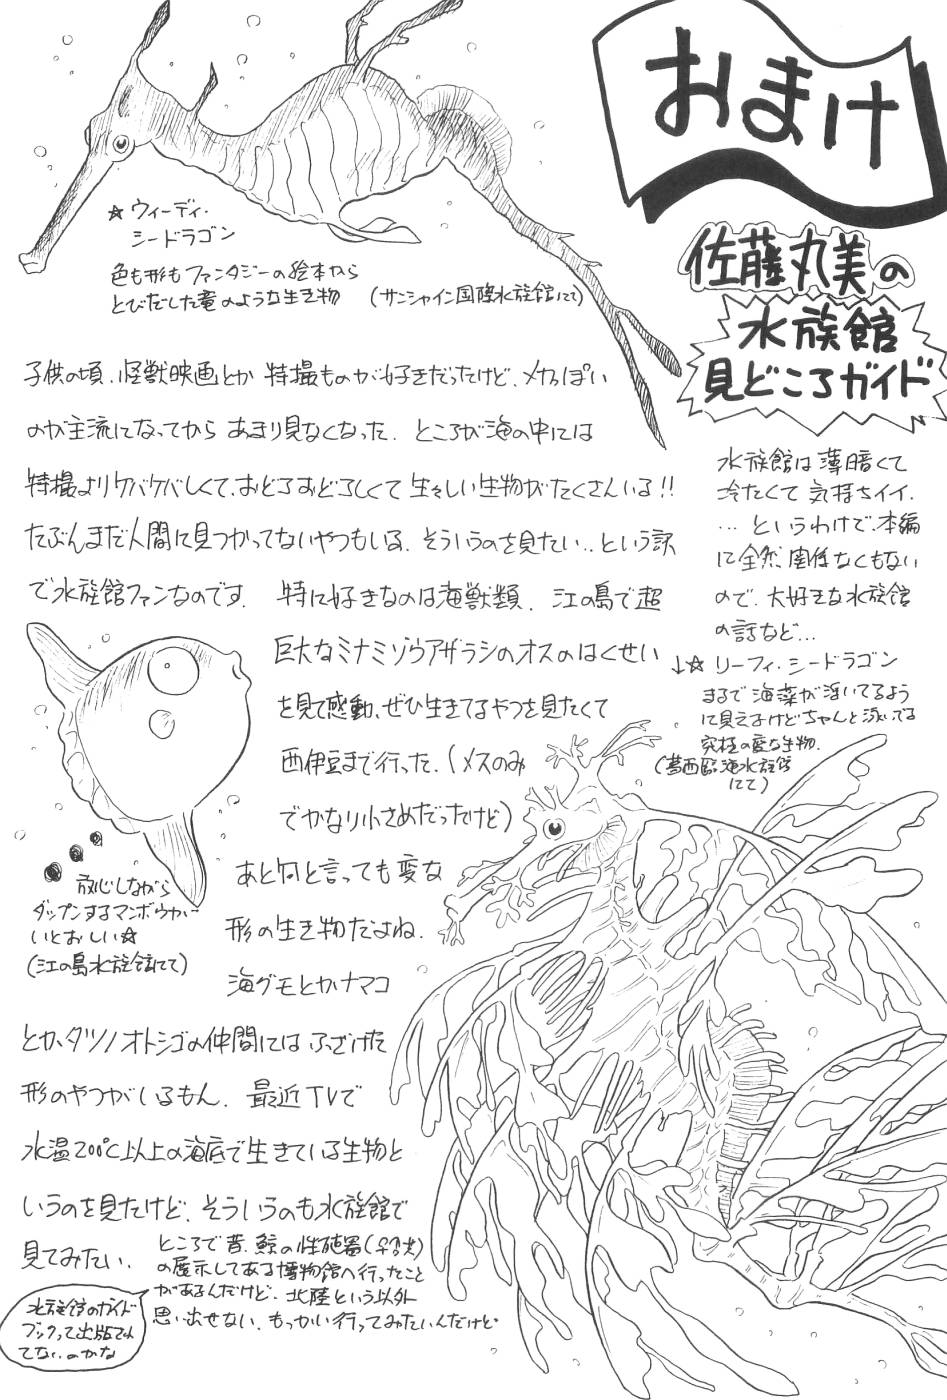 おまけ
佐藤丸美の
水族館
見どころガイド
水族館は薄暗くて
冷たくて気持ちイイ.
…というわけで、本編
に全然関係なくもない
ので、大好きな水族館
の話など…
☆ウィーディ・
シードラゴン
色も形もファンタジーの絵本から
とびだした竜のような生き物 (サンシャイン国際水族館にて)
子供の頃、怪獣映画とか特撮ものが好きだったけど、メカっぽい
のが主流になってからあまり見なくなった. ところが海の中には
特撮よりケバケバしくて、おどろおどろしくて生々しい生物がたくさんいる!!
たぶんまだ人間に見つかってないやつもいる. そういうのを見たい..という訳
で水族館ファンなのです. 特に好きなのは海獣類. 江の島で超
巨大なミナミゾウアザラシのオスのはくせい
を見て感動、ぜひ生きてるやつを見たくて
西伊豆まで行った.(メスのみ
でかなり小さめだったけど)
あと何と言っても変な
形の生き物だよね.
海グモとかナマコ
とか、タツノオトシゴの仲間にはふざけた
形のやつがいるもん. 最近TVで
水温200℃以上の海底で生きている生物と
いうのを見たけど、そういうのも水族館で
見てみたい.
↓☆リーフィ・シードラゴン
まるで海藻が浮いてるよう
に見えるけどちゃんと泳いでる
究極の変な生物.
(葛西臨海水族館
にて)
放心しながら
ダップンするマンボウが…
いとおしい☆
(江の島水族館にて)
ところで昔、鯨の性殖器(♀♂共)
の展示してある博物館へ行ったこと
があるんだけど、北陸という以外
思い出せない. もっかい行ってみたいんだけど・
水族館のガイド
ブックって出版されて
てないのかな